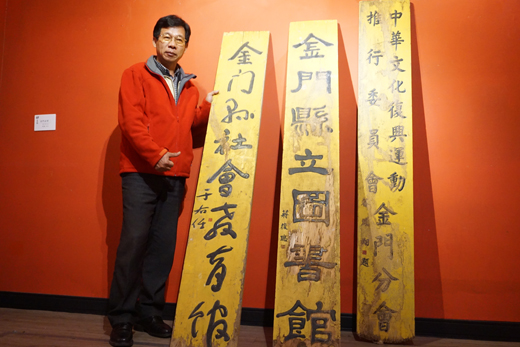 中華文化復興運動
推行委員會
金門分會
金門縣立圖書館
蔣復璁
金门县社會教育馆
于右任